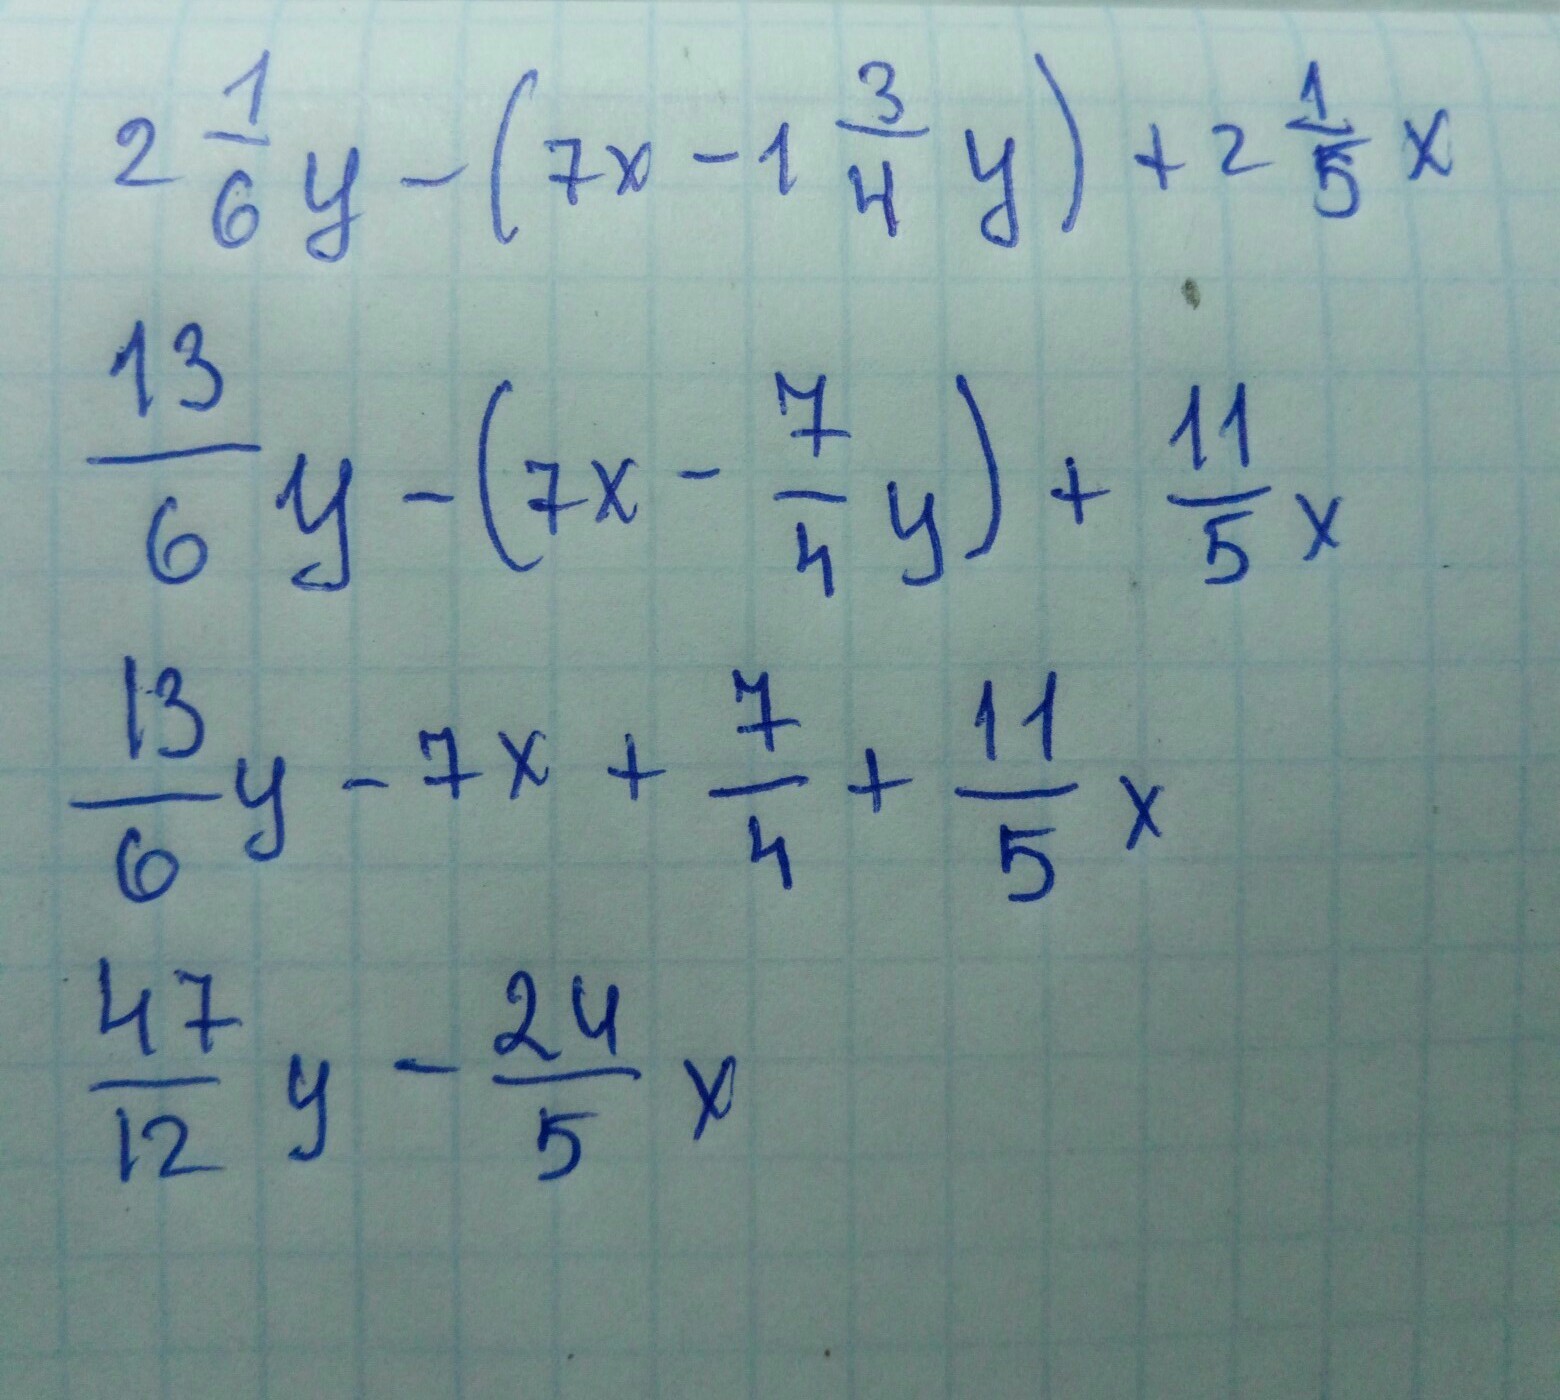 2 1/6 y - (7x - 1 3/4 y) + 2 1/5 x
13/6 y - (7x - 7/4 y) + 11/5 x
13/6 y - 7x + 7/4 + 11/5 x
47/12 y - 24/5 x